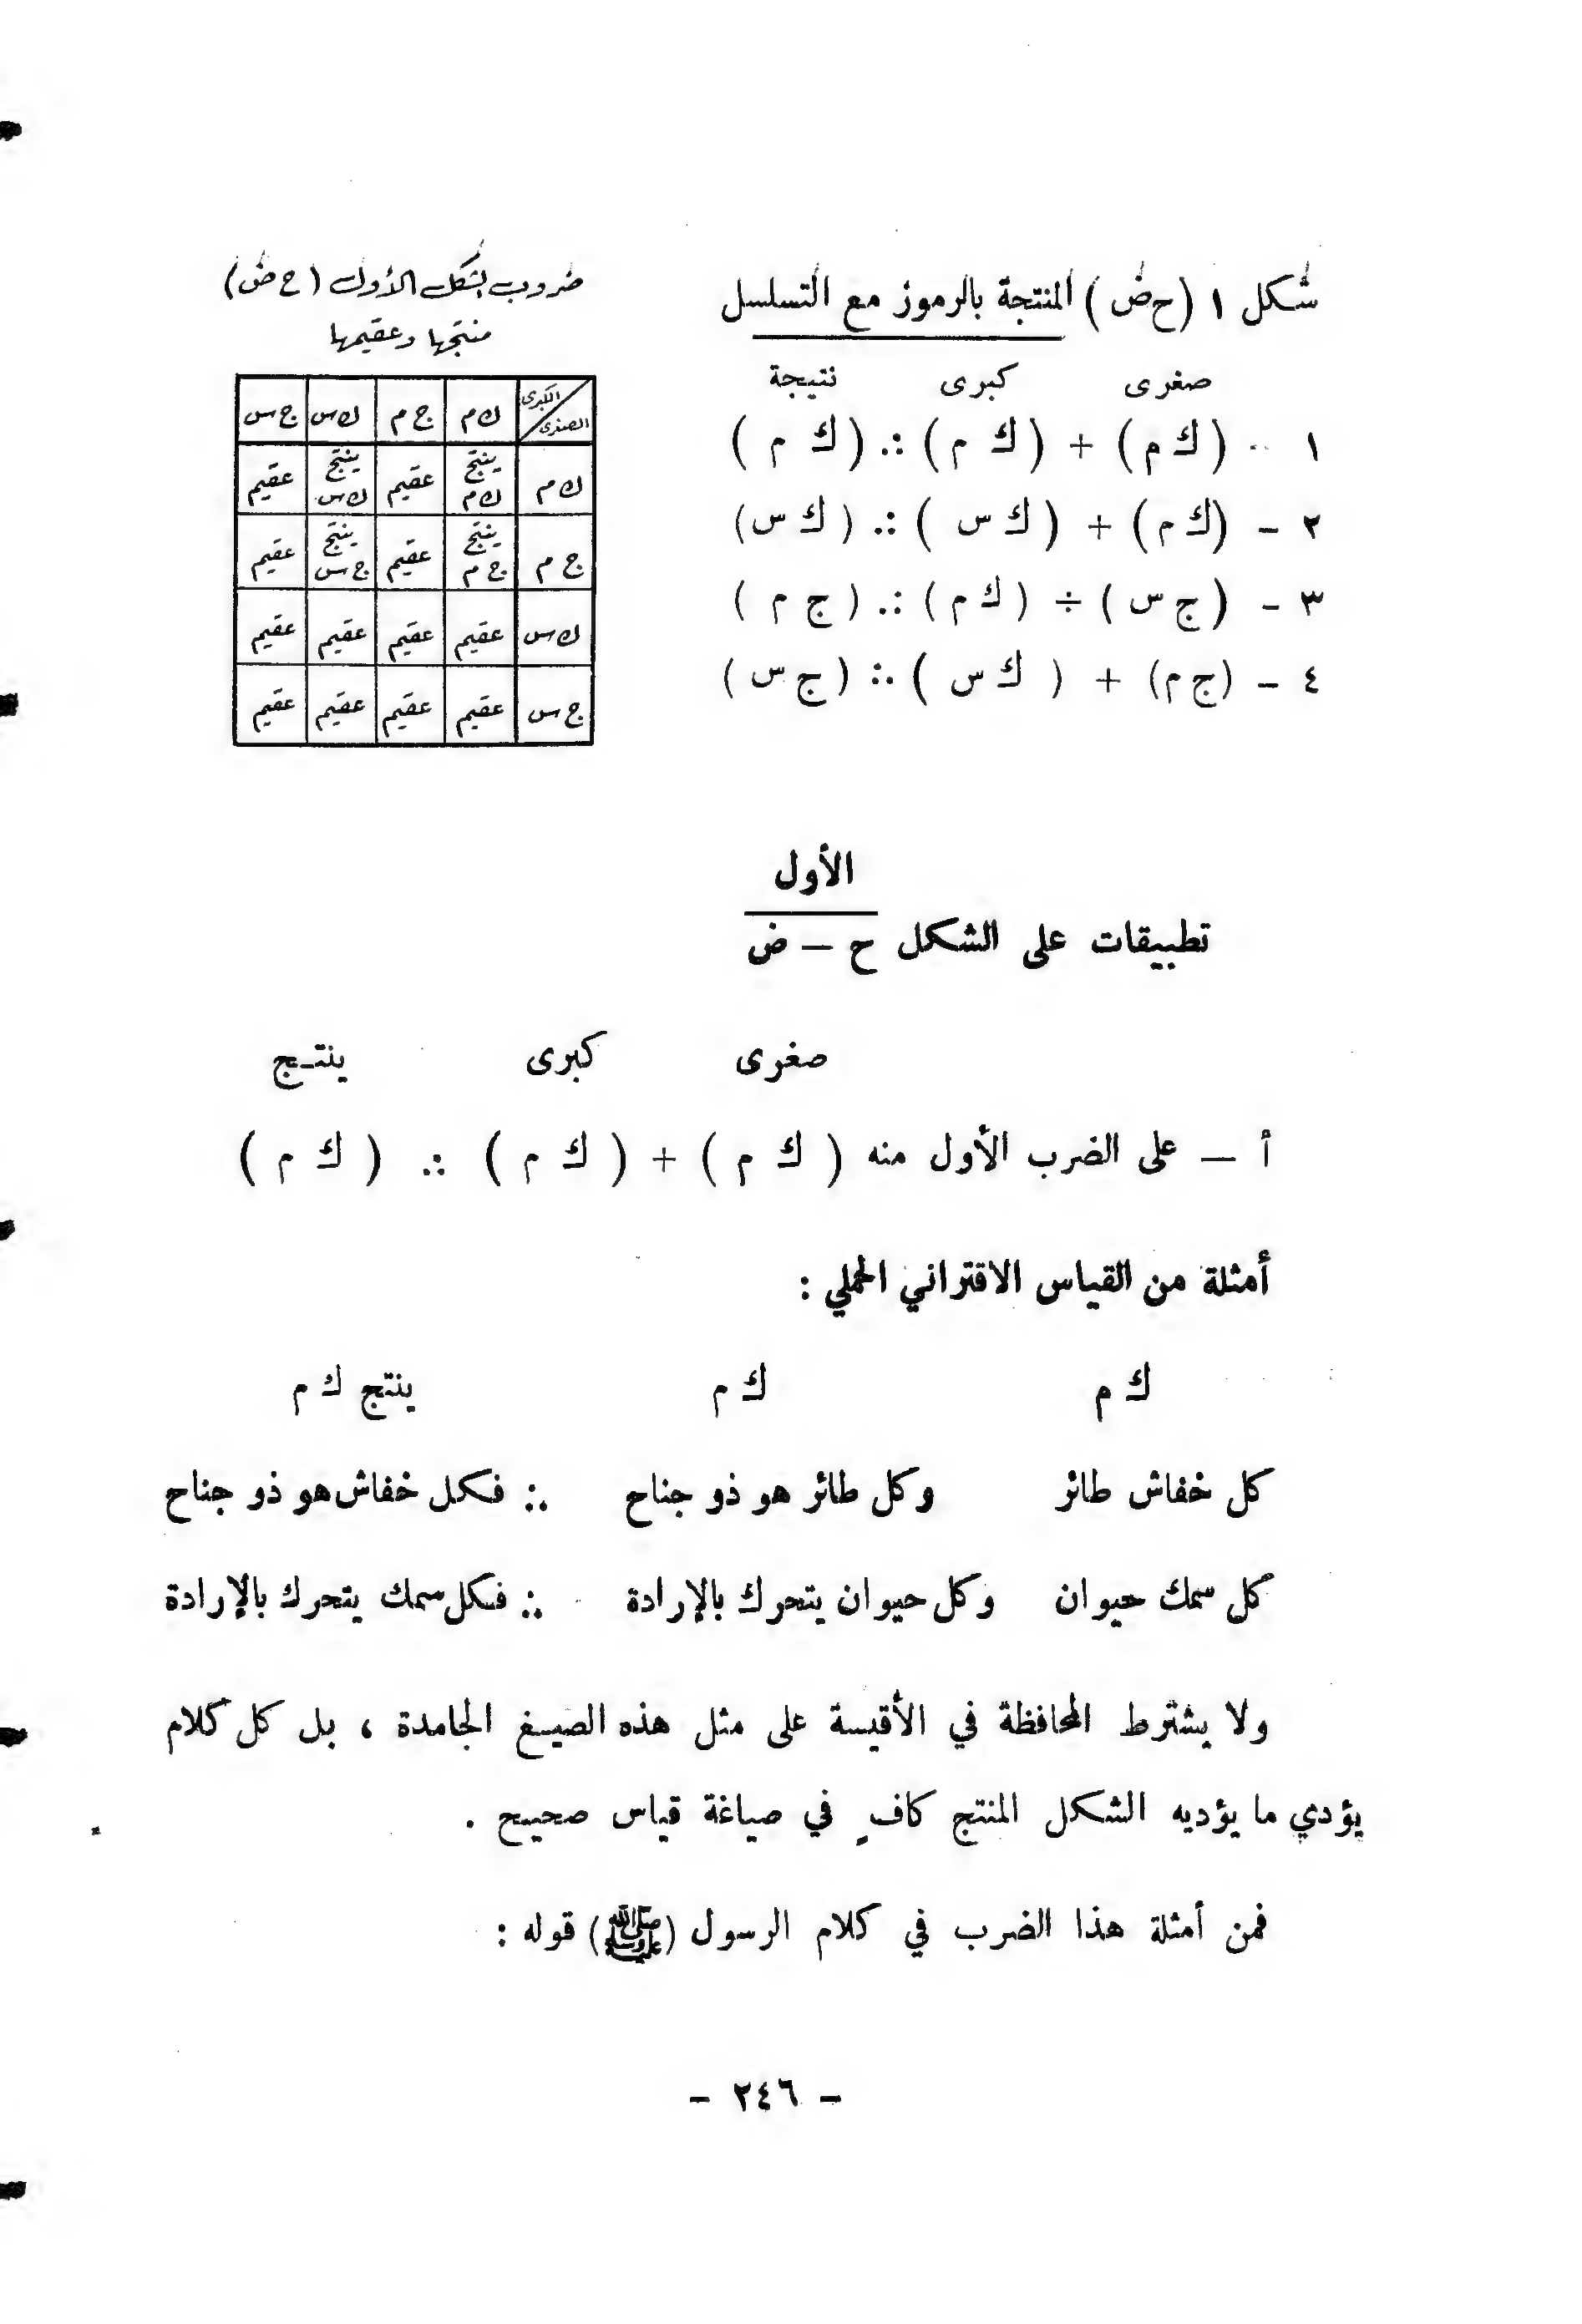 شكل ١ (ح ض) المنتجة بالرموز مع التسلسل
صغرى كبرى نتيجة
١ - (ك م) + (ك م) ∴ (ك م)
٢ - (ك م) + (ك س) ∴ (ك س)
٣ - (ج س) ÷ (ك م) ∴ (ج م)
٤ - (ج م) + (ك س) ∴ (ج س)
ضروب الشكل الأول (ح ض)
منتجها وعقيمها
الكبرى / الصغرى ك م ج م ك س ج س
ك م ينتج ك م عقيم ينتج ك س عقيم
ج م ينتج ج م عقيم ينتج ج س عقيم
ك س عقيم عقيم عقيم عقيم
ج س عقيم عقيم عقيم عقيم
الأول
تطبيقات على الشكل ح – ض
صغرى كبرى ينتـج
أ – على الضرب الأول منه (ك م) + (ك م) ∴ (ك م)
أمثلة من القياس الاقتراني الحملي :
ك م ك م ينتج ك م
كل خفاش طائر وكل طائر هو ذو جناح ∴ فكل خفاش هو ذو جناح
كل سمك حيوان وكل حيوان يتحرك بالإرادة ∴ فكل سمك يتحرك بالإرادة
ولا يشترط المحافظة في الأقيسة على مثل هذه الصيغ الجامدة ، بل كل كلام
يؤدي ما يؤديه الشكل المنتج كافٍ في صياغة قياس صحيح .
فمن أمثلة هذا الضرب في كلام الرسول (ﷺ) قوله :
- ٢٤٦ -